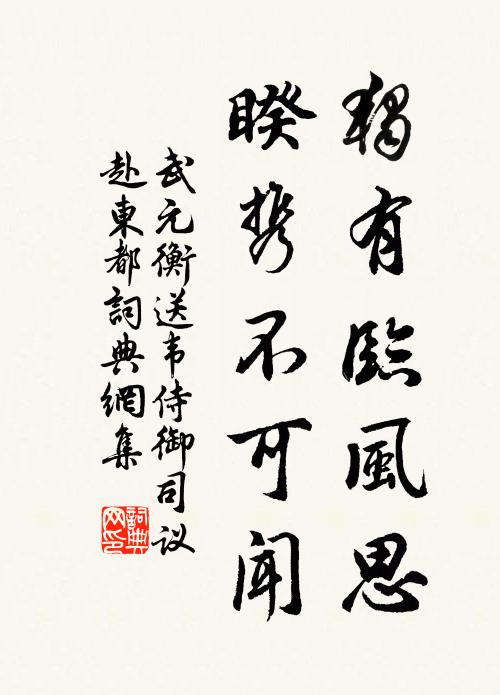 獨有臨風思
睽携不可聞
武元衡送韦侍御司议
赴東都詞典網集
詞典网印